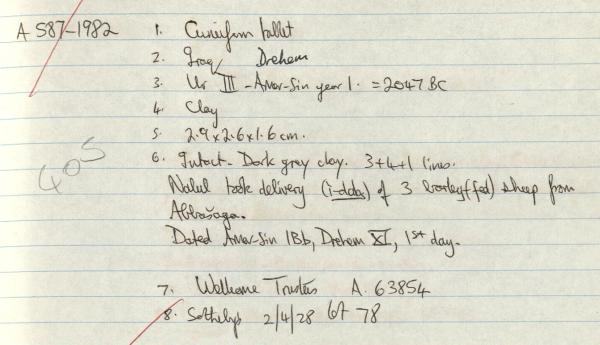 A 587-1982
1. Cuneiform tablet
2. Iraq, Drehem
3. Ur III - Amar-Sin year 1. = 2047 BC
4. Clay
5. 2.9 x 2.6 x 1.6 cm.
6. Intact - Dark grey clay. 3+4+1 lines.
405
Nalul took delivery (i-dda) of 3 barley(fed) sheep from
Abbašaga.
Dated Amar-Sin 1Bb, Drehem XI, 1st day.
7. Wellcome Trustees A. 63854
8. Sothebys 2/4/28 lot 78